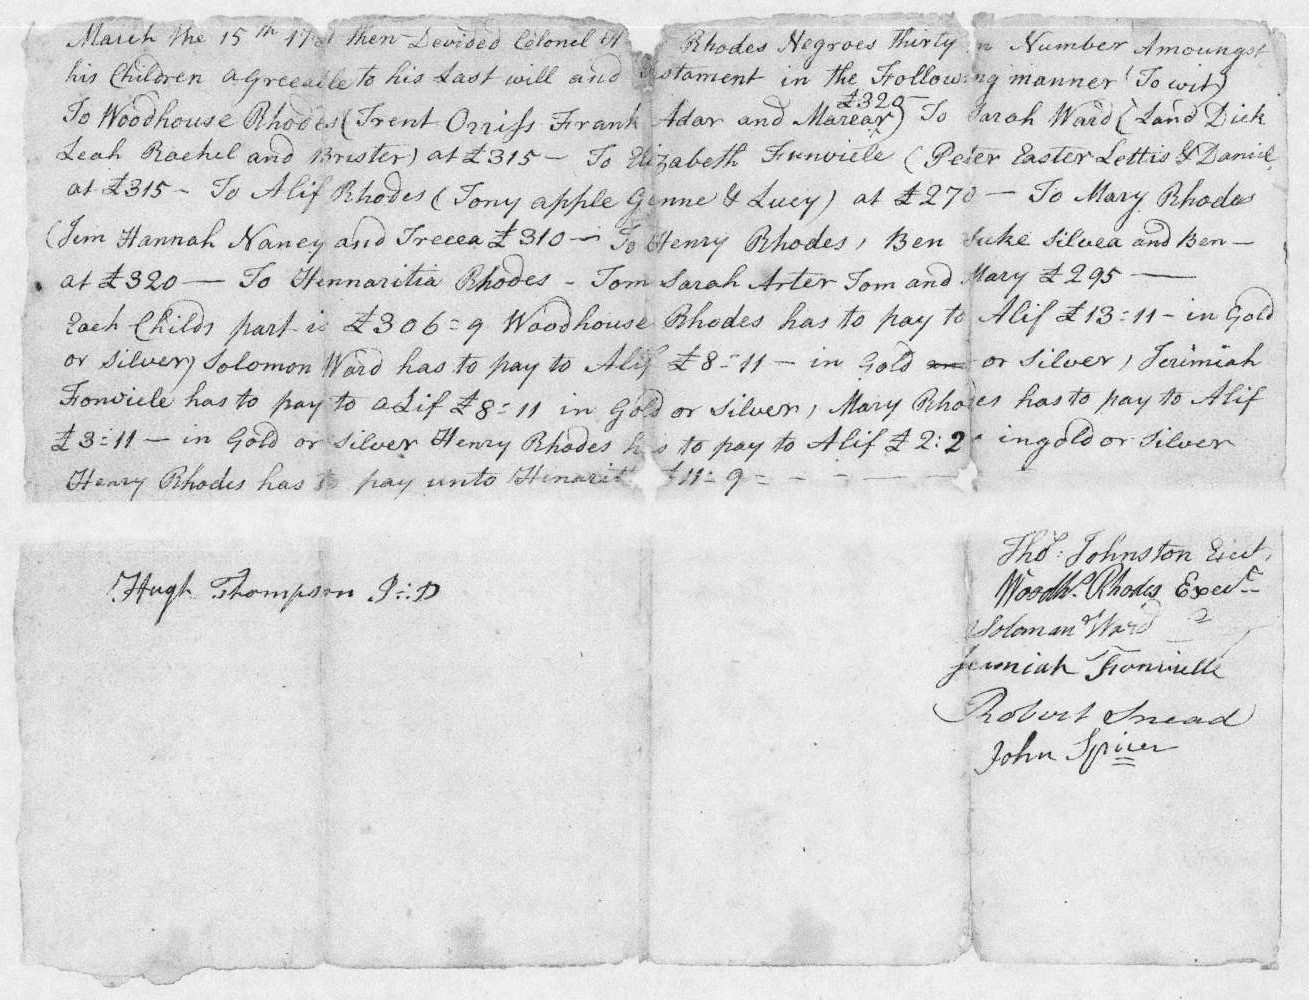 March the 15th then Devided Colonel Rhodes Negroes thirty in Number Amoungst
his Children agreeable to his Last will and Testament in the Following manner (To wit)
£320
To Woodhouse Rhodes (Trent Orriss Frank Adar and Marear) To Sarah Ward (Land Dick
Leah Rachel and Brister) at £315 — To Elizabeth Funviele (Peter Easter Lettis & Daniel
at £315 - To Alif Rhodes (Tony apple Genne & Lucy) at £270 — To Mary Rhodes
(Jem Hannah Nancy and Treeea £310 — To Henry Rhodes, Ben Suke Silvea and Ben —
at £320 — To Hennaritia Rhodes - Tom Sarah Arter Tom and Mary £295 —
Each Childs part is £306=9 Woodhouse Rhodes has to pay to Alif £13=11 - in Gold
or Silver) Solomon Ward has to pay to Alif £8=11 — in Gold or Silver, Jerimiah
Fonviele has to pay to aLif £8=11 in Gold or Silver, Mary Rhodes has to pay to Alif
£3=11 — in Gold or Silver Henry Rhodes has to pay to Alif £2:2 in gold or Silver
Henry Rhodes has to pay unto Henarit £11=9=
Thos: Johnston Exect.
Hugh Thompson J:D
Woodhs. Rhodes Exec
Soloman Ward
Jeremiah Fonvielle
Robert Snead
John Spicer